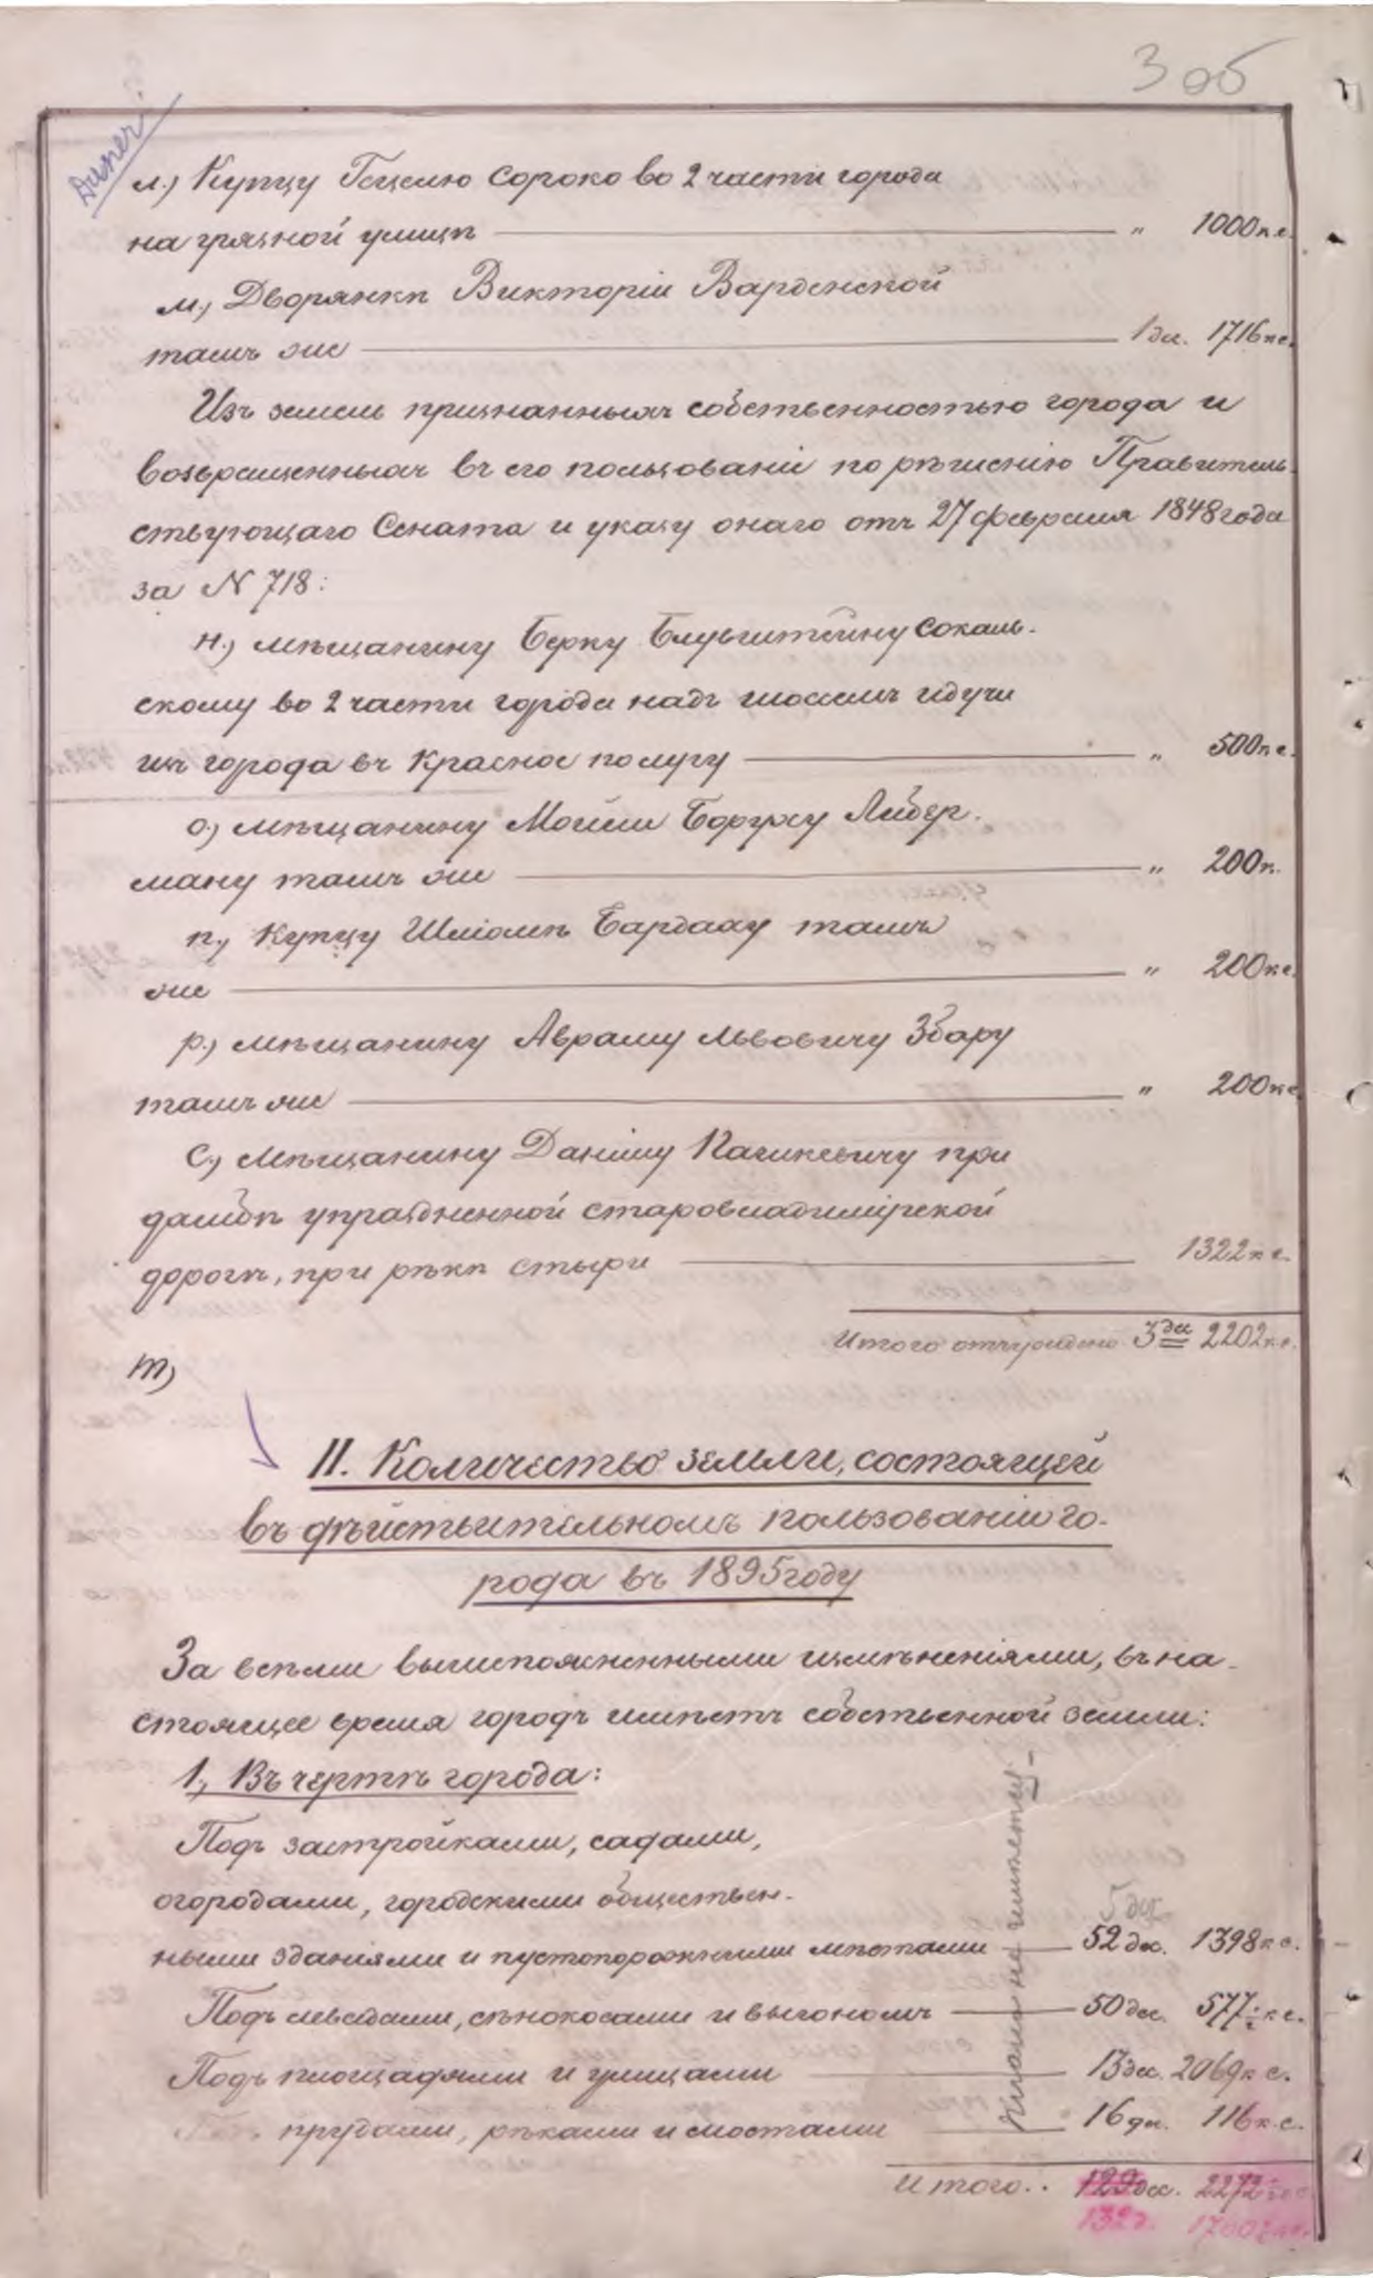 3 об
л.) Купцу Гецелю Сороко во 2 части города
на грязной улицѣ — „ 1000 к.с.
м.) Дворянкѣ Викторіи Варденской
тамъ же — 1 дес. 1716 к.с.
Изъ земель признанныхъ собственностью города и
возвращенныхъ въ его пользованіе по рѣшенію Правитель-
ствующаго Сената и указу онаго отъ 27 февраля 1848 года
за N 718:
н.) мѣщанину Берку Блувштейну Сокаль-
скому во 2 части города надъ шоссемъ идучи
изъ города въ Красное по лугу — „ 500 к.с.
о.) мѣщанину Мойши Боруху Либер-
ману тамъ же — „ 200 к.
п.) Купцу Шліомѣ Бардаху тамъ
же — „ 200 к.с.
р.) мѣщанину Авраму Львовичу Збару
тамъ же — „ 200 к.с.
с.) Мѣщанину Данілу при
дамбѣ упраздненной старовладимірской
дороги, при рѣкѣ стыри — 1322 к.с.
Итого отчуждено 3 дес 2202 к.с.
т)
II. Количество земли, состоящей
въ дѣйствительномъ пользованіи го-
рода въ 1895 году
За всѣми вышепоясненными измѣненіями, въ на-
стоящее время городъ имѣетъ собственной земли:
1., Въ чертѣ города:
Подъ застройками, садами,
огородами, городскими обществен-
5 дес
ными зданіями и пустопорожними мѣстами — 52 дес. 1398 к.с.
Подъ левадами, сѣнокосами и выгономъ — 50 дес. 577 к.с.
Подъ площадями и улицами — 13 дес. 2069 к.с.
прудами, рѣками и мостами — 16 дес. 116 к.с.
Итого.. 129 дес. 2272
132 д.